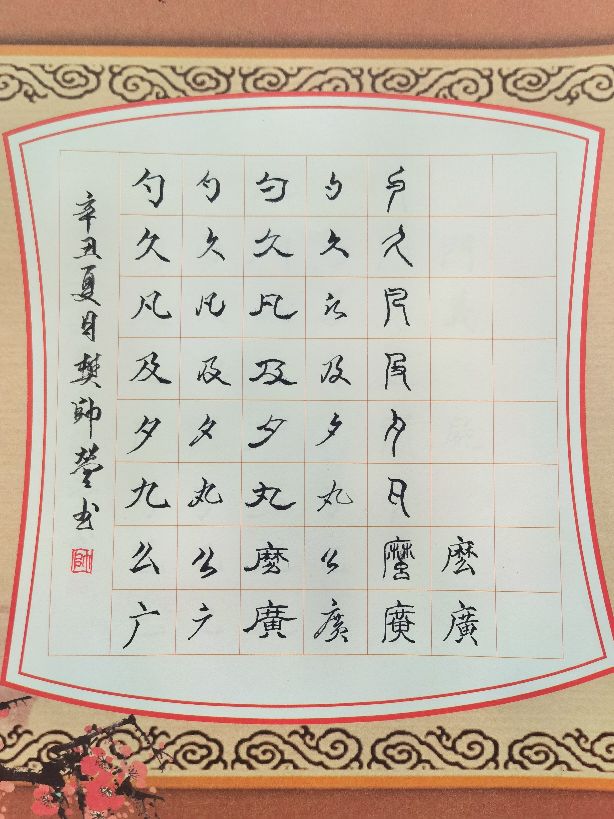 勺 勺 勺 勺 勺
久 久 久 久 久
凡 凡 凡 凡 凡
及 及 及 及 及
夕 夕 夕 夕 夕
丸 丸 丸 丸 丸
么 么 麽 么 麽 麽
广 广 廣 廣 廣 廣
辛丑夏月樊帥瑩书
帥